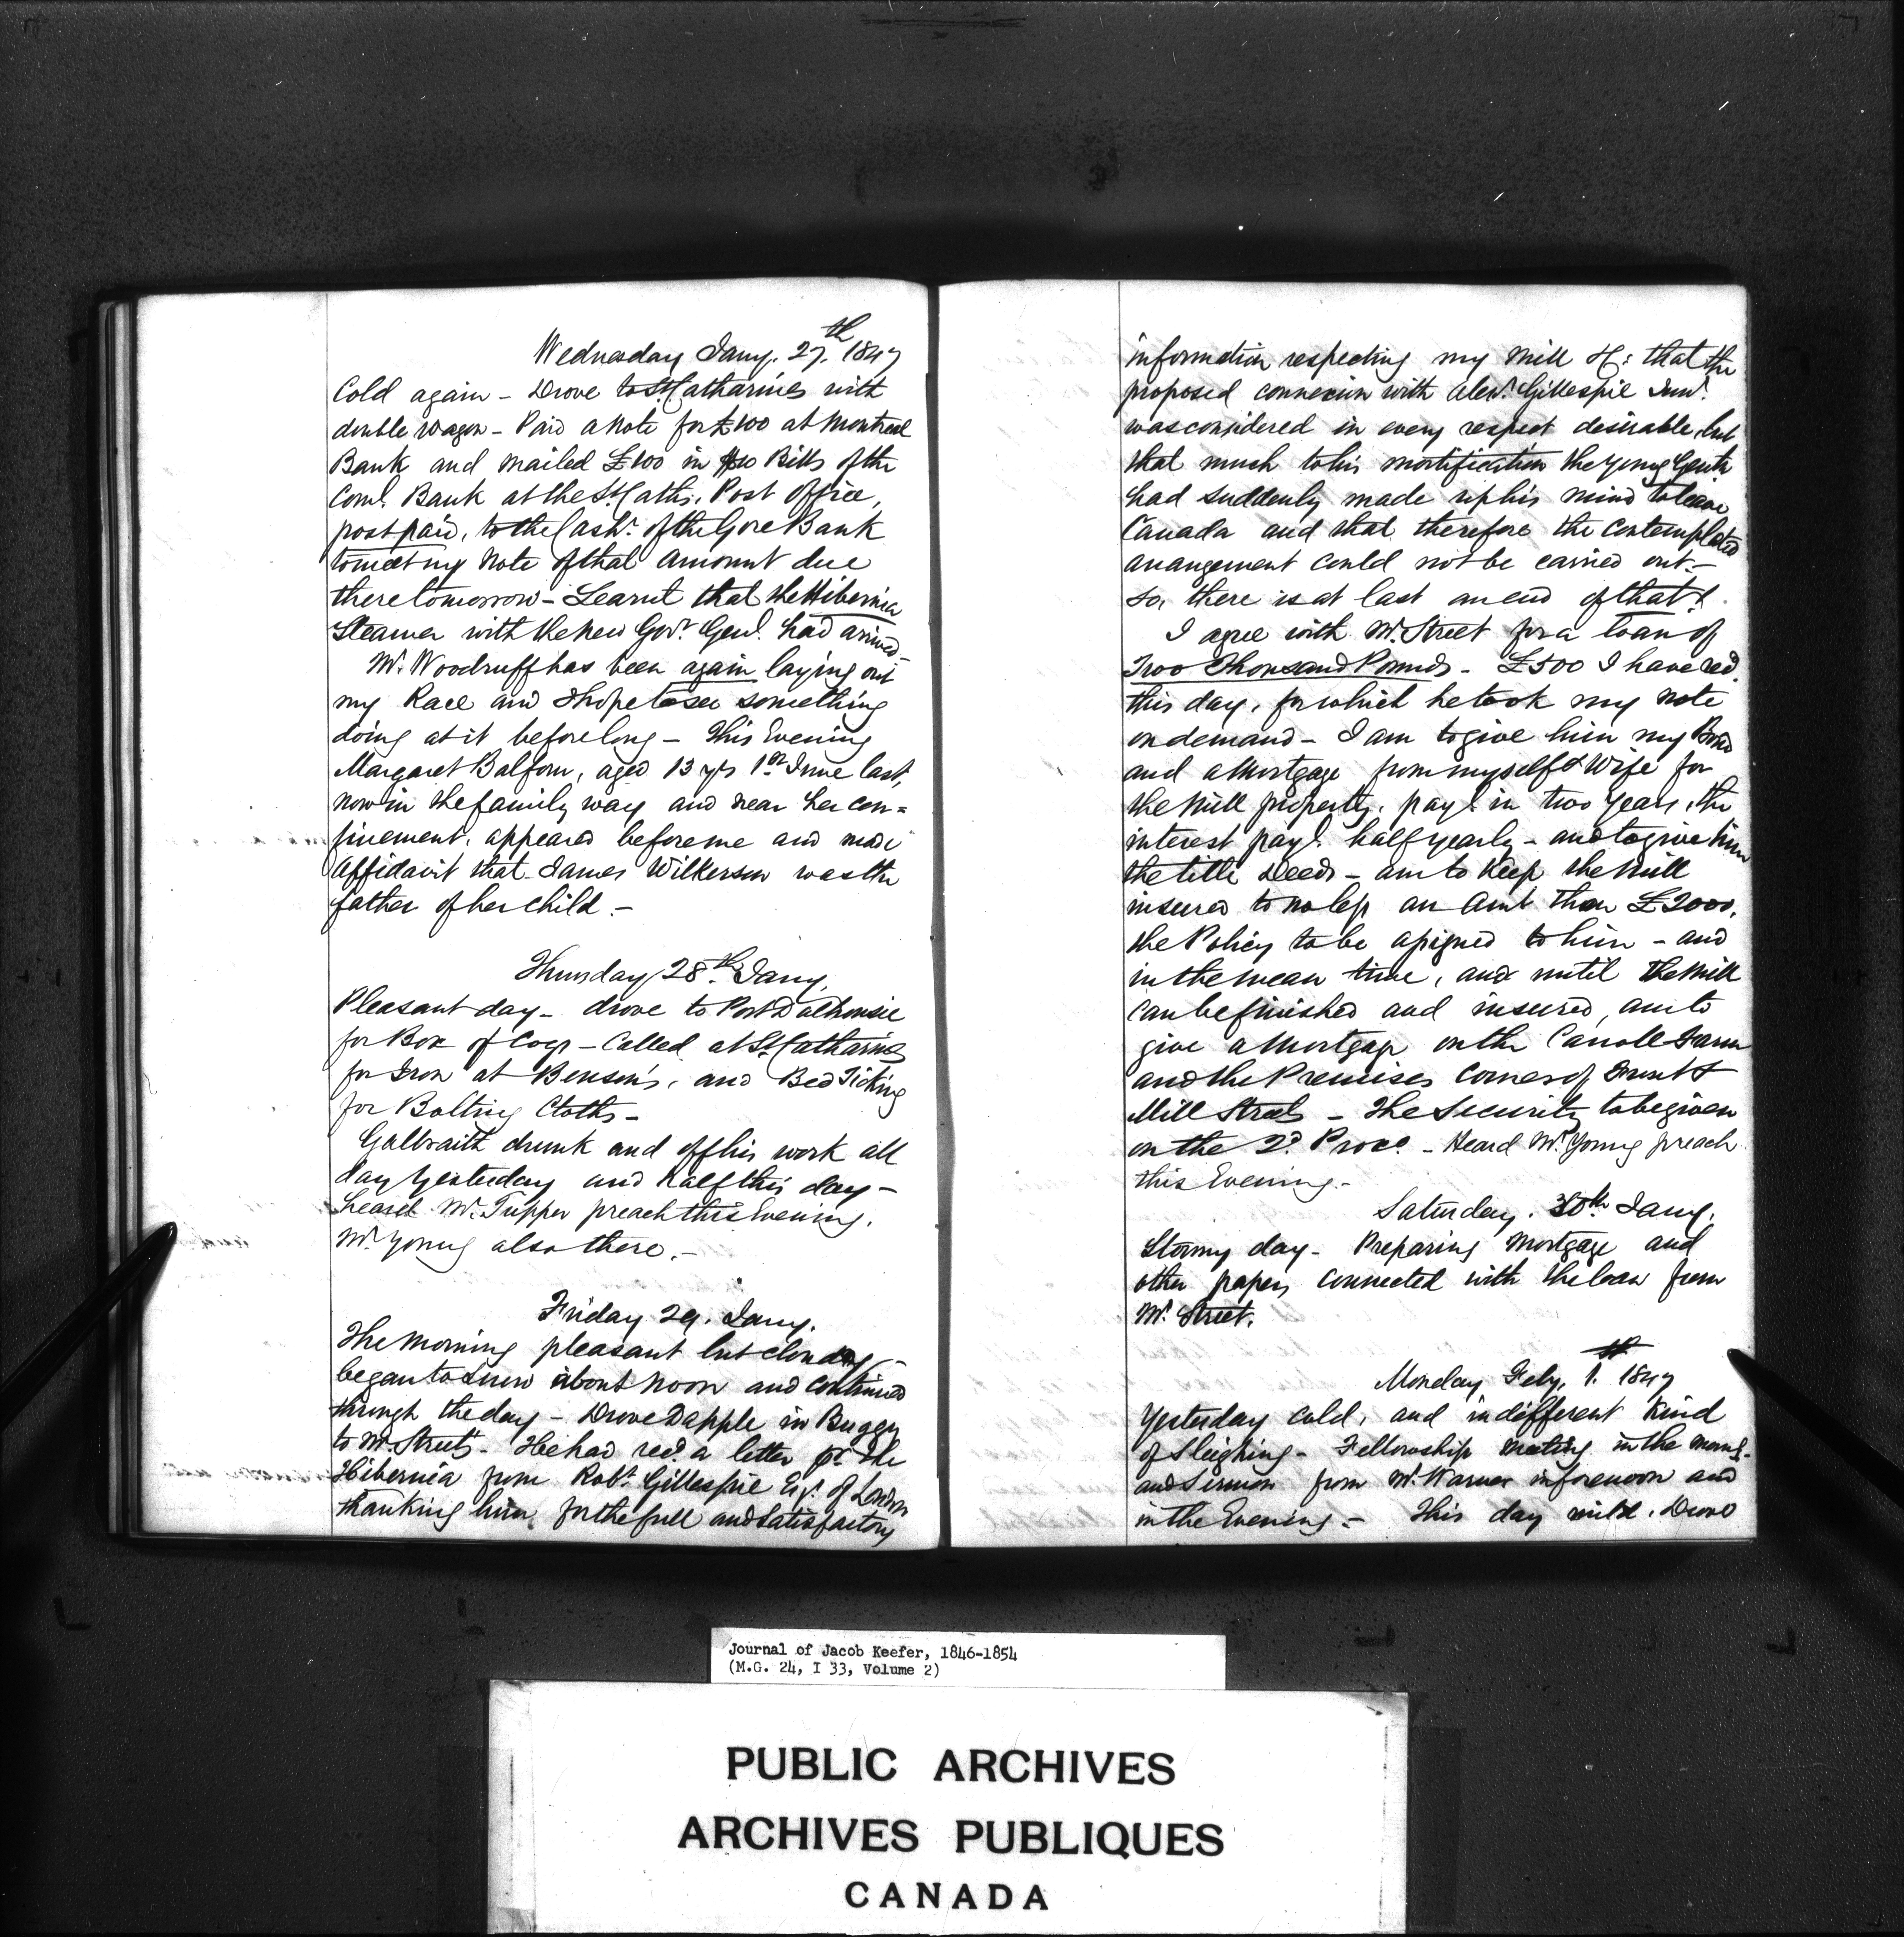 Wednesday Jany. 27th 1847
Cold again - Drove to St Catharines with
double wagon - Paid a note for £100 at Montreal
Bank and mailed £100 in $10 Bills of the
Coml. Bank at the St Caths. Post Office,
post paid, to the Cashr. of the Gore Bank
to meet my note of that amount due
there tomorrow - Learnt that the Hibernia
Steamer with the new Govr. Genl. had arrived -
Mr. Woodruff has been again laying out
my Race and I hope to see something
doing at it before long - This Evening
Margaret Balfour, aged 13 yrs 1st June last,
now in the family way and near her con=
finement, appeared before me and made
affidavit that James Wilkerson was the
father of her child -
Thursday 28th Jany.
Pleasant day - drove to Port Dalhousie
for Box of Cogs - Called at St Catharines
for Iron at Benson's, and Bed Ticking
for Bolting Cloths -
Galbraith drunk and off his work all
day yesterday and half this day -
heard Mr. Tupper preach this Evening.
Mr. Young also there. -
Friday 29. Jany.
The morning pleasant but cloudy -
began to snow about noon and continued
through the day - Drove Dapple in Buggy
to Mr. Street's - He had recd. a letter pr the
Hibernia from Robt. Gillespie Esq. of London
thanking him for the full and satisfactory
information respecting my Mill &c: that the
proposed connexion with Alexr. Gillespie Junr.
was considered in every respect desirable, but
that much to his mortification the young Gentn.
had suddenly made up his mind to leave
Canada and that therefore the contemplated
arrangement could not be carried out. -
So, there is at last an end of that!
I agree with Mr. Street for a loan of
Two Thousand Pounds - £500 I have recd.
this day, for which he took my note
on demand - I am to give him my Bond
and a Mortgage from myself & Wife for
the Mill property, payl. in two years, the
interest payl. half yearly - and to give him
the title Deeds - am to keep the Mill
insured to no less an amt than £2000,
the Policy to be assigned to him - and
in the mean time, and until the Mill
can be finished and insured, am to
give a Mortgage on the Carroll Farm
and the Premises corner of Front &
Mill Streets - The Security to be given
on the 2d. Proxo. - Heard Mr. Young preach
this Evening. -
Saturday. 30th Jany.
Stormy day - Preparing Mortgage and
other papers connected with the loan from
Mr. Street.
Monday Feby. 1. 1847
Yesterday cold, and indifferent kind
of Sleighing - Fellowship meeting in the morng.
and Sermon from Mr. Warner in forenoon and
in the Evening. - This day mild. Drove
Journal of Jacob Keefer, 1846-1854
(M.G. 24, I 33, Volume 2)
PUBLIC ARCHIVES
ARCHIVES PUBLIQUES
CANADA